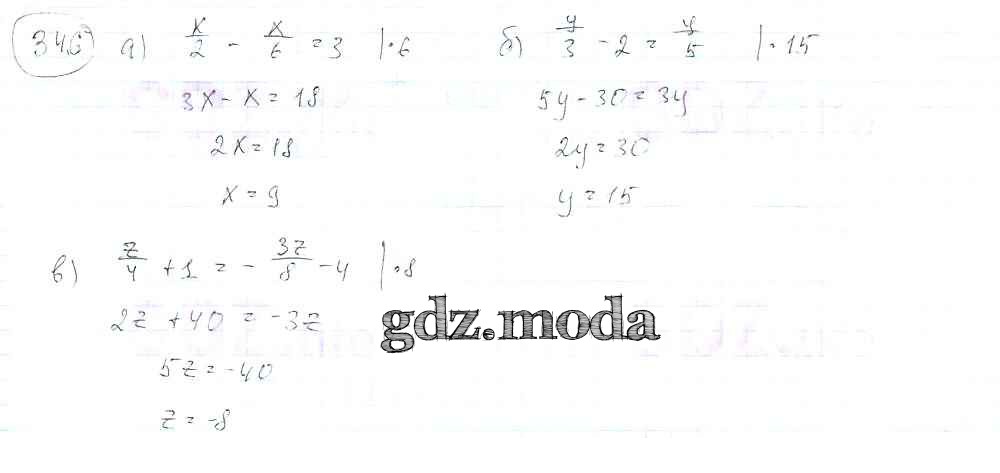 346 а) x/2 - x/6 = 3 |·6
3x - x = 18
2x = 18
x = 9
б) y/3 - 2 = y/5 |·15
5y - 30 = 3y
2y = 30
y = 15
в) z/4 + 1 = - 3z/8 - 4 |·8
2z + 40 = -3z
5z = -40
z = -8
gdz.moda